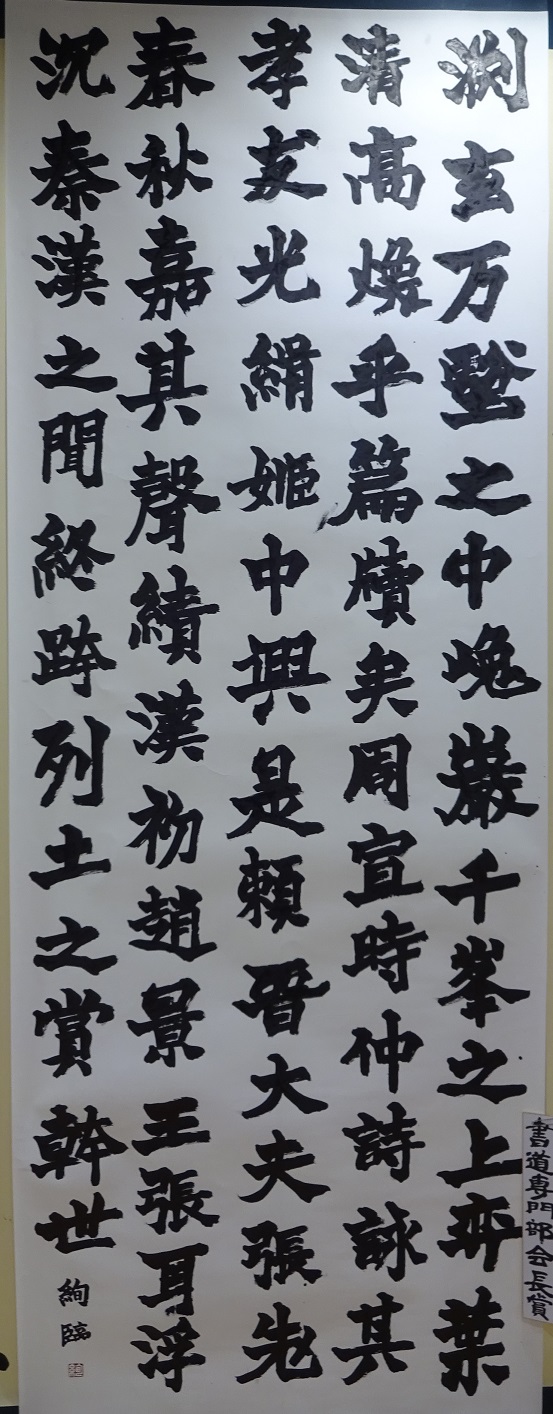 淵玄万壑之中巍巖千峯之上弈葉
清高煥乎篇牘矣周宣時仲詩詠其
孝友光緝姬中興是賴晋大夫張老
春秋嘉其聲績漢初趙景王張耳浮
沉秦漢之聞終跨列土之賞幹世
絢臨
書道専門部会長賞